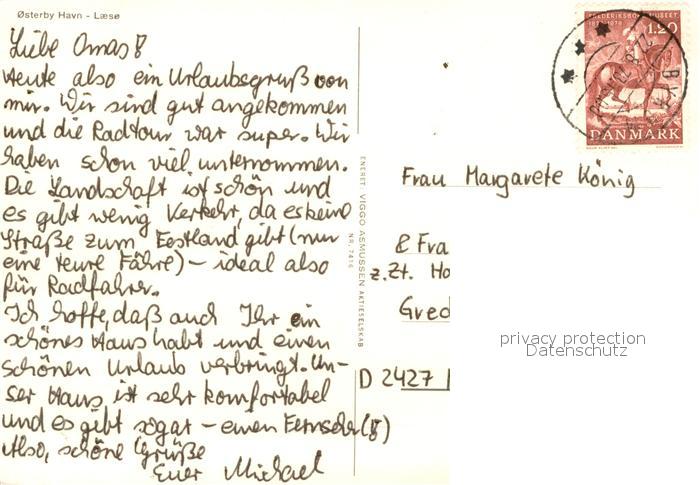 Østerby Havn - Læsø
Liebe Omas!
Heute also ein Urlaubsgruß von
mir. Wir sind gut angekommen
und die Radtour war super. Wir
haben schon viel unternommen.
Die Landschaft ist schön und
es gibt wenig Verkehr, da es keine
Straße zum Festland gibt (nur
eine teure Fähre) – ideal also
für Radfahrer.
Ich hoffe, daß auch Ihr ein
schönes Haus habt und einen
schönen Urlaub verbringt. Un-
ser Haus ist sehr komfortabel
und es gibt sogar – einen Fernseher (!)
Also, schöne Grüße
Euer Michael
ENERET: VIGGO ASMUSSEN AKTIESELSKAB
NR. 7416
FREDERIKSBORGMUSEET
1878-1978
1.20
DANMARK
Frau Margarete König
& Fra
z.Zt. Ho
Gred
D 2427
privacy protection
Datenschutz